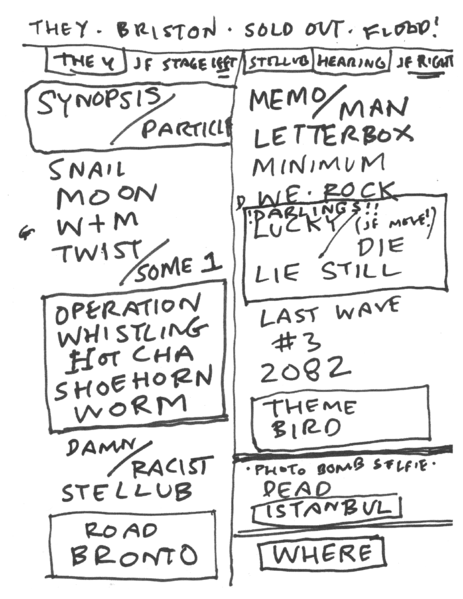 THEY · BRISTON · SOLD OUT · FLOOD!
THEY JF STAGE LEFT
SYNOPSIS/
PARTICLE
SNAIL
MOON
W+M
TWIST/
SOME 1
OPERATION
WHISTLING
HOT CHA
SHOEHORN
WORM
DAMN/
RACIST
STELLUB
ROAD
BRONTO
STELLUB HEARING JF RIGHT
MEMO/MAN
LETTERBOX
MINIMUM
D WE · ROCK
!DARLINGS!!
LUCKY/(JF MOVE!)
DIE
LIE STILL
LAST WAVE
#3
2082
THEME
BIRD
· PHOTO BOMB SELFIE ·
DEAD
ISTANBUL
WHERE